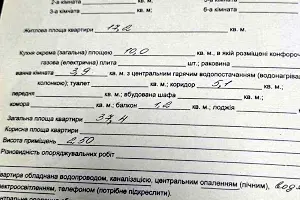 2-а кімната кв. м; 5-а кімната
3-я кімната кв. м; 6-а кімната
Житлова площа квартири 17,2 кв. м.
Кухня окрема (загальна) площею 10,0 кв. м., в якій розміщені конфорочна
газова (електрична) плита шт.; раковина
ванна кімната 3,9 кв. м. з центральним гарячим водопостачанням (водонагрівальною
колонкою); туалет кв. м.; коридор 5,1 кв. м.;
передня кв. м.; вбудована шафа кв. м.;
комора кв. м.; балкон 1,2 кв. м.; лоджія
Загальна площа квартири 37,4 кв. м.
Корисна площа квартири кв. м.
Висота приміщень 2,50
Різновидність опоряджувальних робіт
Квартира обладнана водопроводом, каналізацією, центральним опаленням (пічним),
електроосвітленням, телефоном (потрібне підкреслити).